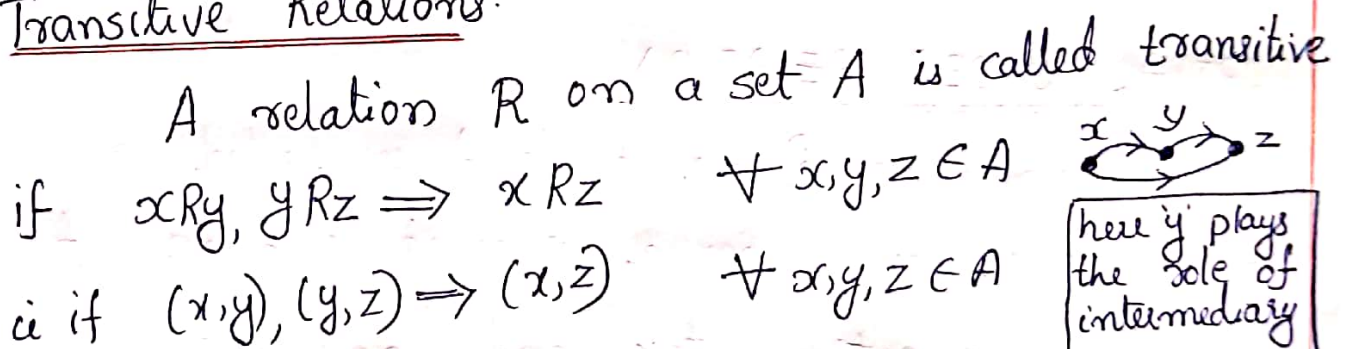 Transitive Relations.
A relation R on a set A is called transitive
if xRy, yRz ⟹ xRz ∀ x,y,z ∈ A
x y z
ie if (x,y), (y,z) ⟹ (x,z) ∀ x,y,z ∈ A
here 'y' plays
the role of
intermediary